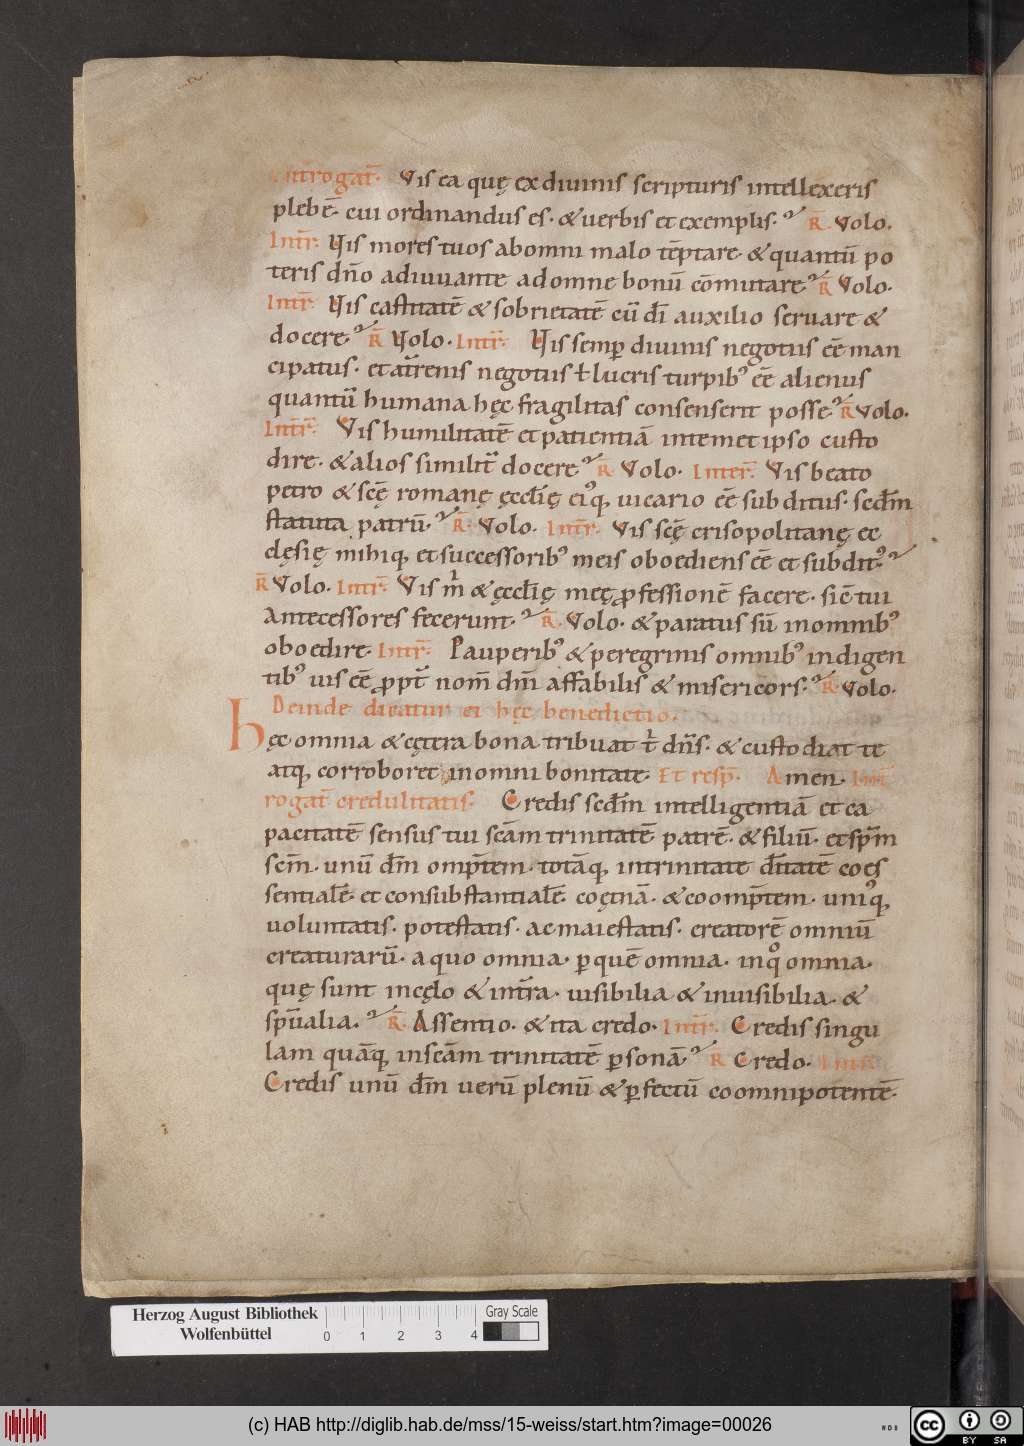 Int̄rogat̄. Vis ea quę ex diuinis scripturis intellexeris
plebē. cui ordinandus es. & uerbis et exemplis. R̄ Volo.
Int̄r. Vis mores tuos ab omni malo tēptare. & quantū po
teris dn̄o adiuuante ad omne bonū cōmutare R̄ Volo.
Int̄r. Vis castitatē & sobrietatē cū dī auxilio seruare &
docere. R̄ Volo. Int̄r. Vis semꝑ diuinis negotiis eē man
cipatus. et at̄renis negotiis ł lucris turpibꝰ eē alienus
quantū humana hęc fragilitas consenserit posse R̄ Volo.
Int̄r. Vis humilitatē et patientiā in temet ipso custo
dire. & alios similit̄ docere R̄ Volo. Inter̄. Vis beato
petro & scę̄ romanę ęccl̄ię eiꝰq, uicario eē subditus. scd̄m
statuta patrū. R̄. Volo. Int̄r. Vis scę̄ crisopolitanę ec
clęsię mihiq, et successoribꝰ meis oboediens eē et subditꝰ.
R̄ Volo. Int̄r. Vis m̍ & ęccl̄ię meę ꝓfessionē facere. sic̄ tui
Antecessores fecerunt. R̄. Volo. & paratus sū in omnibꝰ
oboedire. Int̄r. Pauperibꝰ & peregrinis omnibꝰ indigen
tibꝰ uis eē ꝓpt̄ nom̄ dn̄i affabilis & misericors. R̄. Volo.
Deinde dicatur ei hęc benedictio.
Hęc omnia & cętera bona tribuat t̍ dn̄s. & custodiat te
atq, corroboret in omni bonitate. Et resp̄. Amen. Int̄
rogat̄ credulitatis. Credis scd̄m intelligentiā et ca
pacitatē sensus tui scām trinitatē patrē. & filiū. et sp̄m
scm̄. unū dm̄ omp̄tem. totāq, in trinitate dēitatē coęs
sentialē. et consubstantialē. coęt̄nā. & coomp̄tem. uniꝰq,
uoluntatis. potestatis. ac maiestatis. creatorē omniū
creaturarū. a quo omnia. ꝑ quē omnia. in qͦ omnia.
quę sunt in cęlo & in t̄ra. uisibilia & inuisibilia. &
sp̄ualia. R̄. Assentio. & ita credo. Int̄r. Credis singu
lam quāq, in scām trinitatē ꝑsonā R̄ Credo. Int̄r.
Credis unū dm̄ uerū plenū & ꝑfectū coomnipotentē.
Herzog August Bibliothek
Wolfenbüttel
0 1 2 3 4
Gray Scale
(c) HAB http://diglib.hab.de/mss/15-weiss/start.htm?image=00026
WDB
cc BY SA